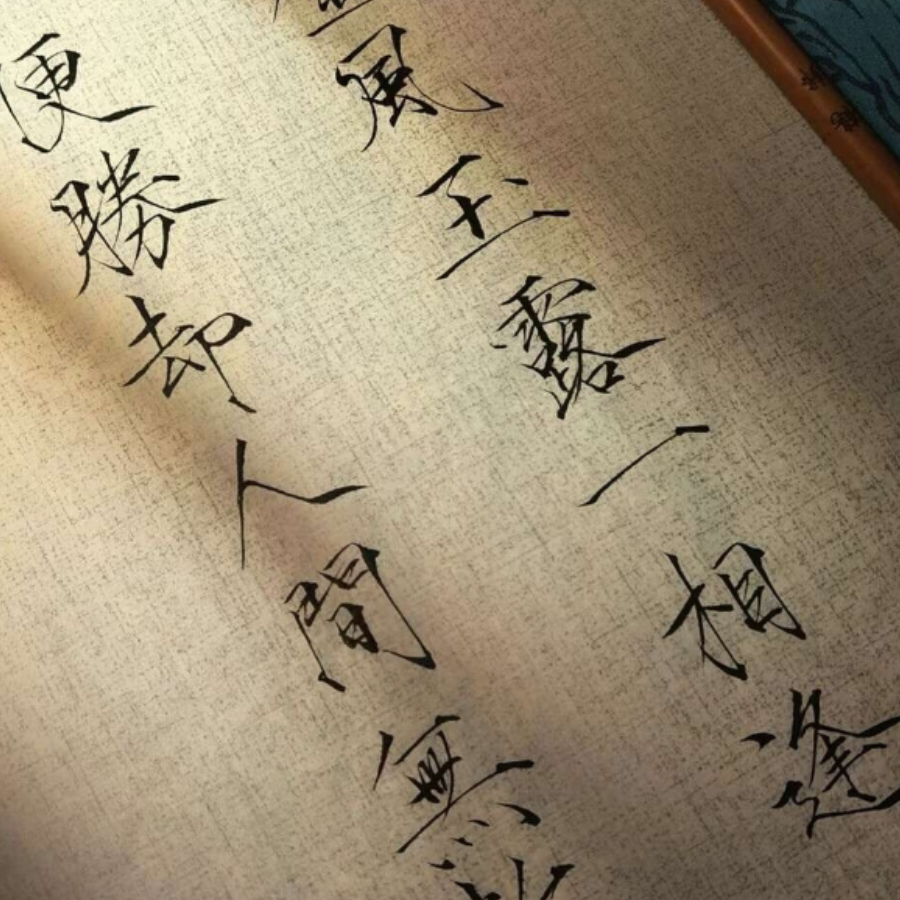 風玉露一相逢
便勝却人間無